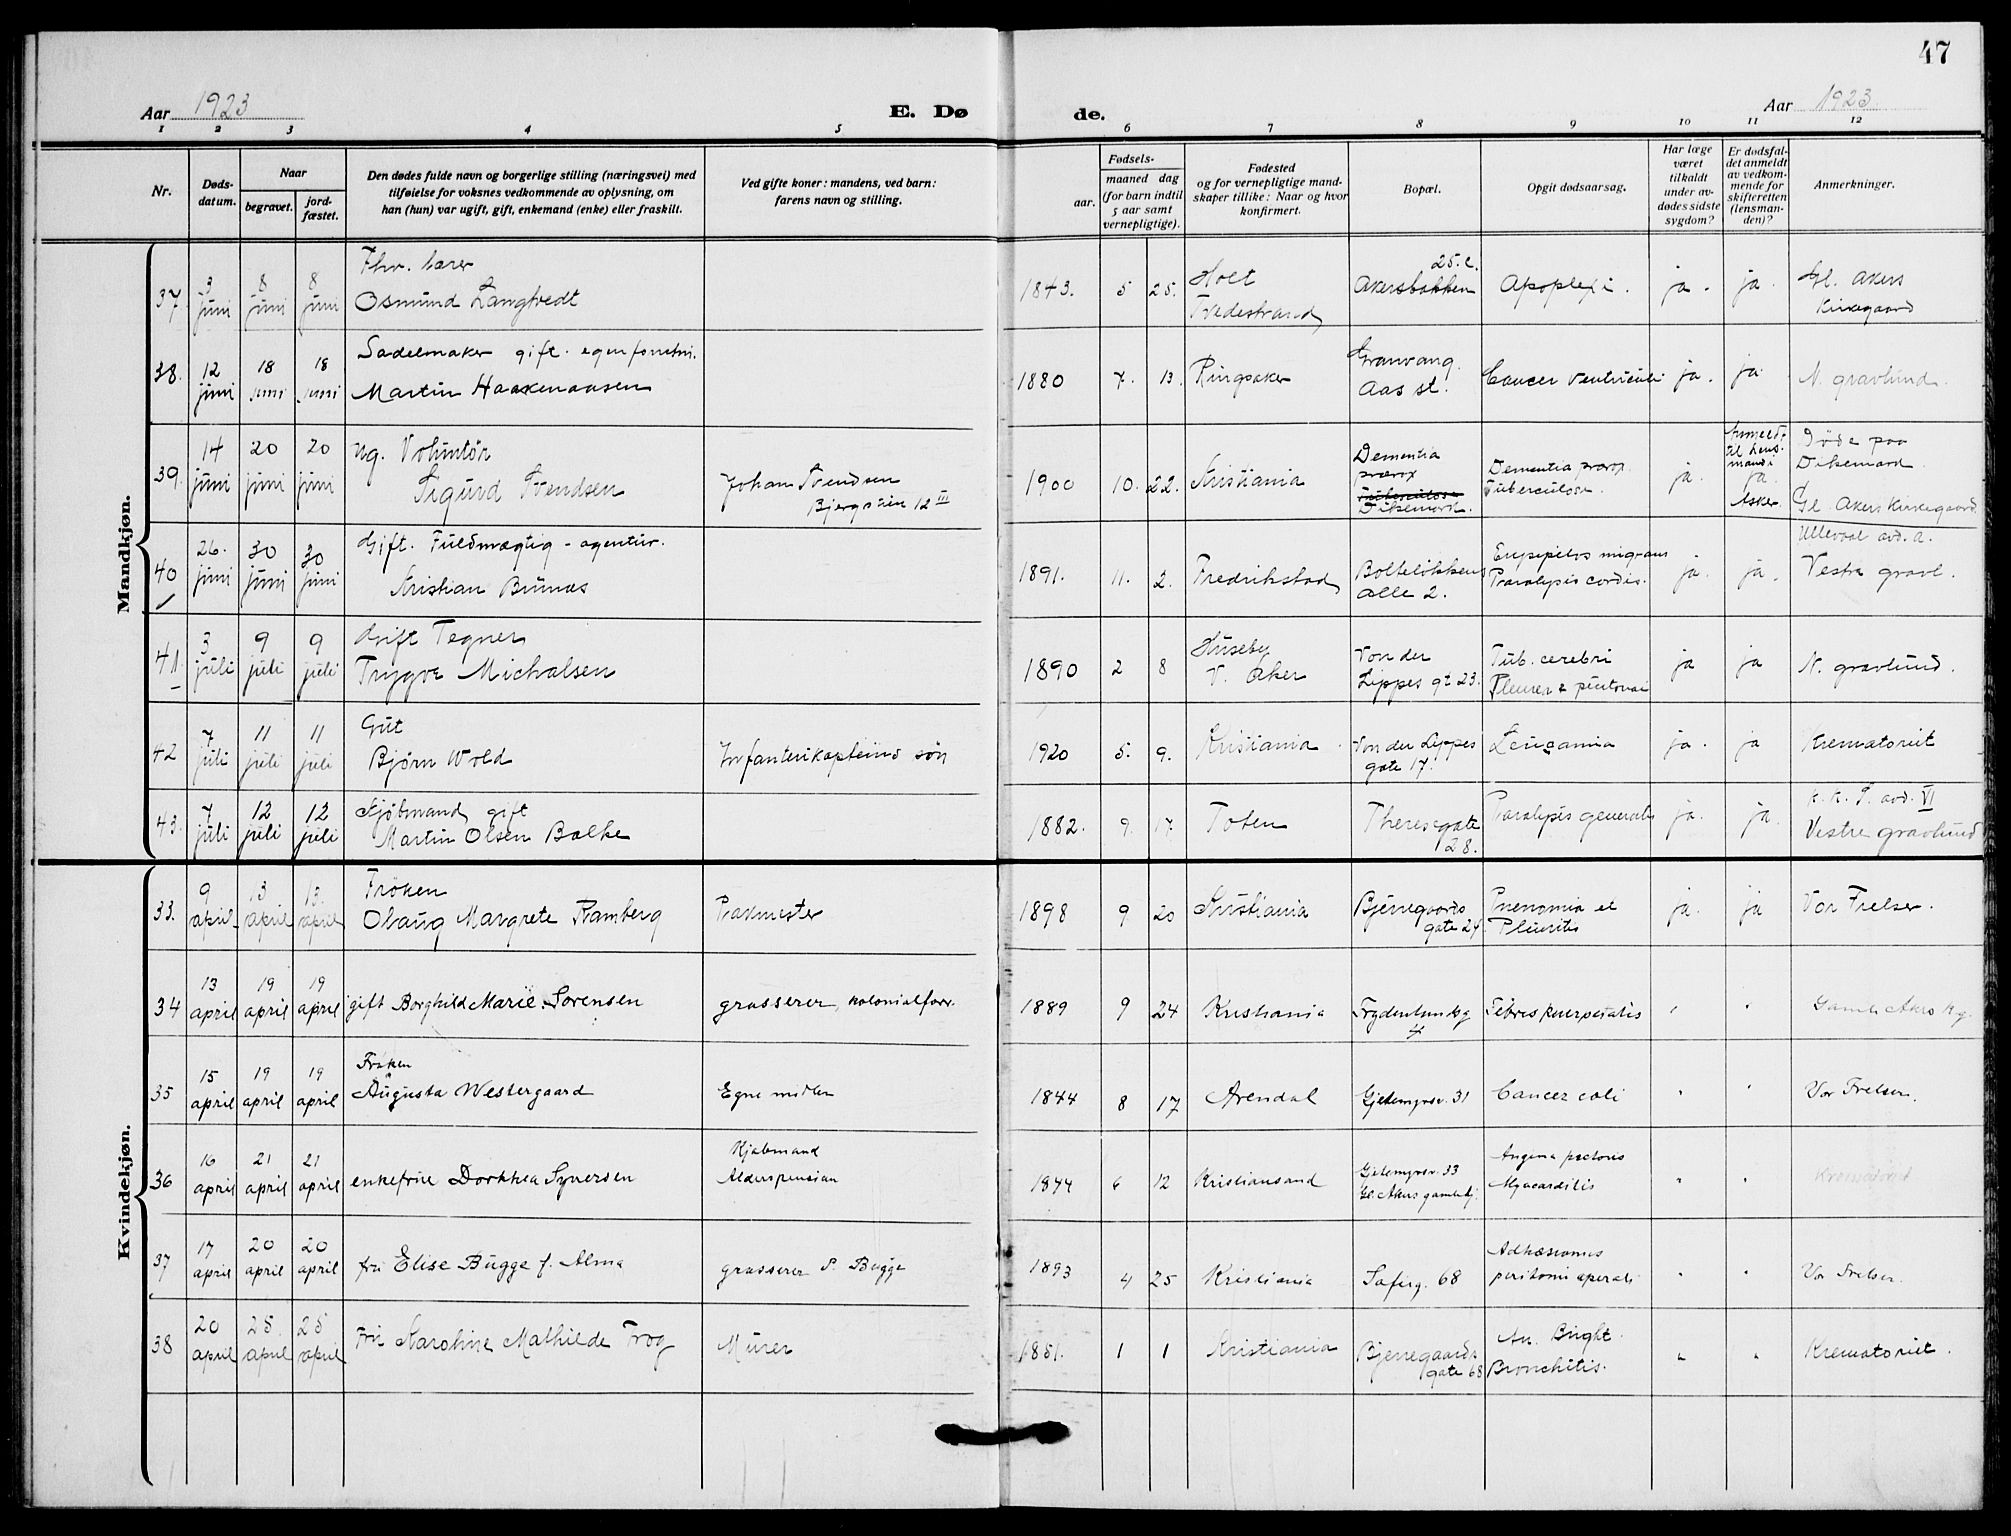 47
Aar 1923
E. Dø de.
Aar 1923
1 2 3 4 5 6 7 8 9 10 11 12
Nr.
Døds-
datum.
Naar
begravet.
jord-
fæstet.
Den dødes fulde navn og borgerlige stilling (næringsvei) med
tilføielse for voksnes vedkommende av oplysning, om
han (hun) var ugift, gift, enkemand (enke) eller fraskilt.
Ved gifte koner: mandens, ved barn:
farens navn og stilling.
Fødsels-
aar.
maaned dag
(for barn indtil
5 aar samt
vernepligtige).
Fødested
og for vernepligtige mand-
skaper tillike: Naar og hvor
konfirmert.
Bopæl.
Opgit dødsaarsag.
Har læge
været
tilkaldt
under av-
dødes sidste
sygdom?
Er dødsfal-
det anmeldt
av vedkom-
mende for
skifteretten
(lensman-
den)?
Anmerkninger.
Mandkjøn.
37. 3 juni 8 juni 8 juni
Fhv. lærer
Osmund Langtvedt
1843. 5 25.
Holt
Tvedestrand
25. c.
Akersbakken
Apoplexi. ja. ja.
Gl. Akers
Kirkegaard
38. 12 juni 18 juni 18 juni
Sadelmaker gift. egen forretn.
Martin Haakenaasen
1880 7. 13. Ringsaker
Granvang
Aas st.
Cancer ventriculi ja. ja N. gravlund.
39. 14 juni 20 juni 20 juni
Ug. Volontør
Sigurd Svendsen
Johan Svendsen
Bjergstien 12 III
1900 10. 22. Kristiania
Dementia
præcox
Tuberculose
Dikemark.
Dementia præcox
Tuberculose.
ja.
Anmeldt
til lens-
mand i
ja.
Asker.
Døde paa
Dikemark
Gl. Akers Kirkegaard.
40 26. juni 30 juni 30 juni
Gift. Fuldmægtig - agentur.
Kristian Brunæs
1891. 11. 2. Fredrikstad
Bolteløkkens
alle 2.
Erysipelas migrans
Paralysis cordis.
ja. ja.
Ullevaal avd. a.
Vestre gravl.
41. 3 juli 9 juli 9 juli
Gift Tegner
Trygve Michalsen
1890 2 8
Huseby
V. Aker
Von der
Lippes gt 23.
Tub. cerebri
Pleurea & peritonei
ja ja N. gravlund.
42 7 juli 11 juli 11 juli
Gut
Bjørn Wold
Infanterikapteins søn
1920 5. 9. Kristiania
Von der Lippes
gate 17.
Leucæmia ja. ja Krematoriet
43. 7 juli 12 juli 12 juli
Kjøbmand gift
Martin Olsen Balke
1882. 9. 17. Toten
Theresegate
28.
Paralysis generalis ja. ja.
K. K. S. avd. VI
Vestre gravlund
Kvindekjøn.
33. 9 april 13 april 13. april
Frøken
Olaug Margrete Ramberg
Pakmester
1898 9 20 Kristiania
Bjerregaards
gate 24
Pneumonia et
Pleuritis
ja. ja Vor Frelser.
34 13 april 19 april 19 april
gift Borghild Marie Sørensen
grosserer, kolonialforr.
1889 9 24 Kristiania
Frydenlundsg
4
Febris puerperalis " "
Gamle Akers Kg.
35 15 april 19 april 19 april
Frøken
Augusta Westergaard
Egne midler
1844 8 17 Arendal
Gjetemyrsv. 31
Cancer coli " " Vor Frelser.
36 16 april 21 april 21 april
enkefrue Dorthea Syversen
Kjøbmand
Alderspension
1844 6 12 Kristiansand
Gjetemyrsv. 33
Gl. Akers gamlehj.
Angina pectoris
Myocarditis
" " Krematoriet
37 17 april 20 april 20 april
fru Elise Bugge f. Alma
grosserer S. Bugge
1893 4 25 Kristiania
Sofieg. 68
Adhæsiones
peritonei operati
" " Vor Frelser.
38 20 april 25 april 25 april
Fru Karoline Mathilde Trog
Murer
1851. 1 1 Kristiania
Bjerregaards
gate 68
An. Bright.
Bronchitis.
" " Krematoriet.